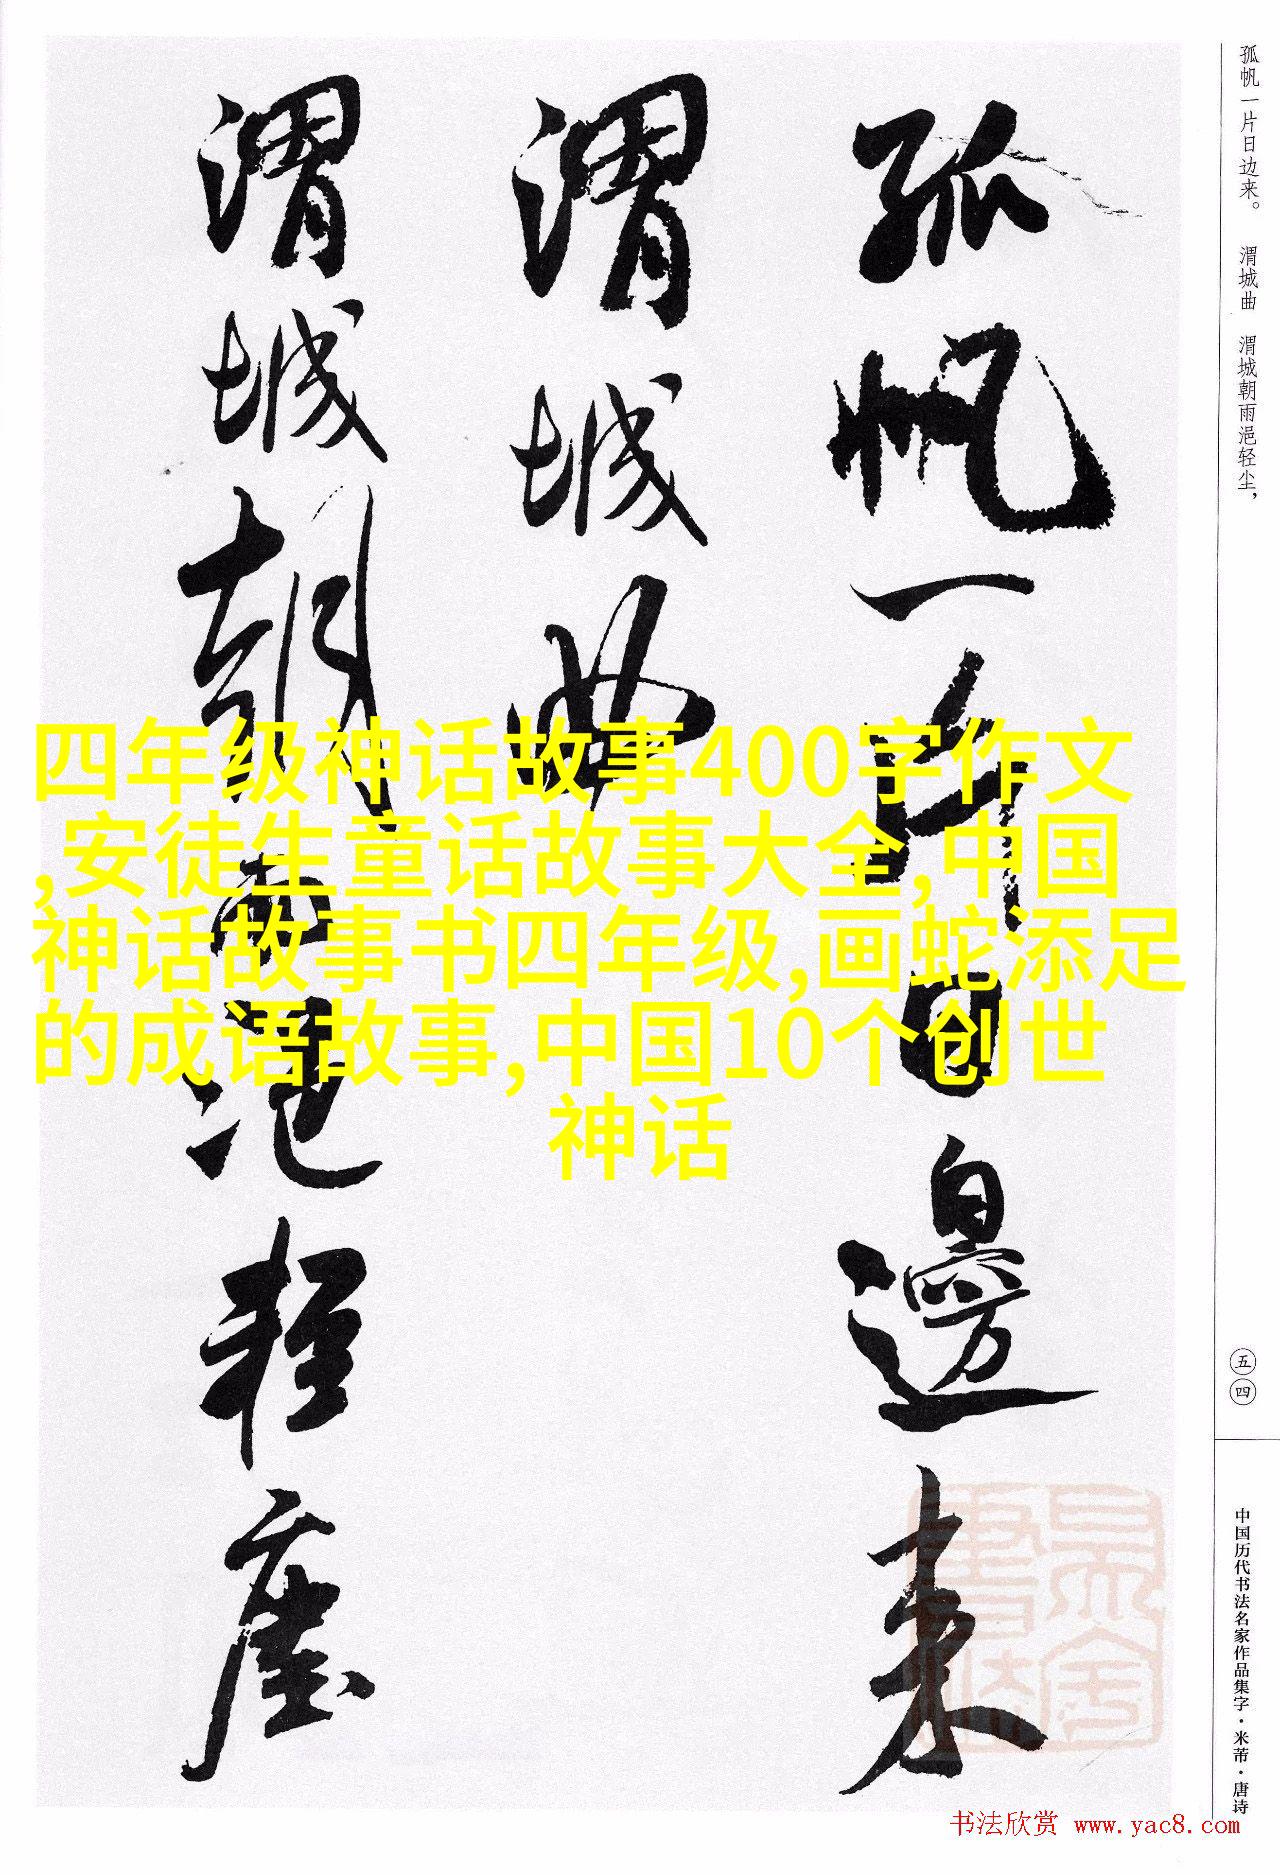 孤帆一片日边来。 渭城曲 渭城朝雨浥轻尘，
孤帆一片日邊来
渭城曲
渭城朝雨浥轻塵
四年级神话故事400字作文
,安徒生童话故事大全,中国
神话故事书四年级,画蛇添足
的成语故事,中国10个创世
神话
五四
中国历代书法名家作品集字·米芾·唐诗
书法欣赏 www.yac8.com